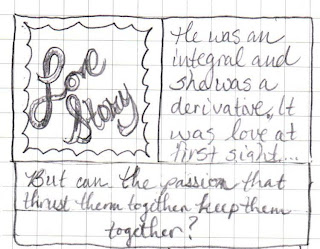 Love
Story
He was an
integral and
she was a
derivative. It
was love at
first sight....
But can the passion that
thrust them together keep them
together?